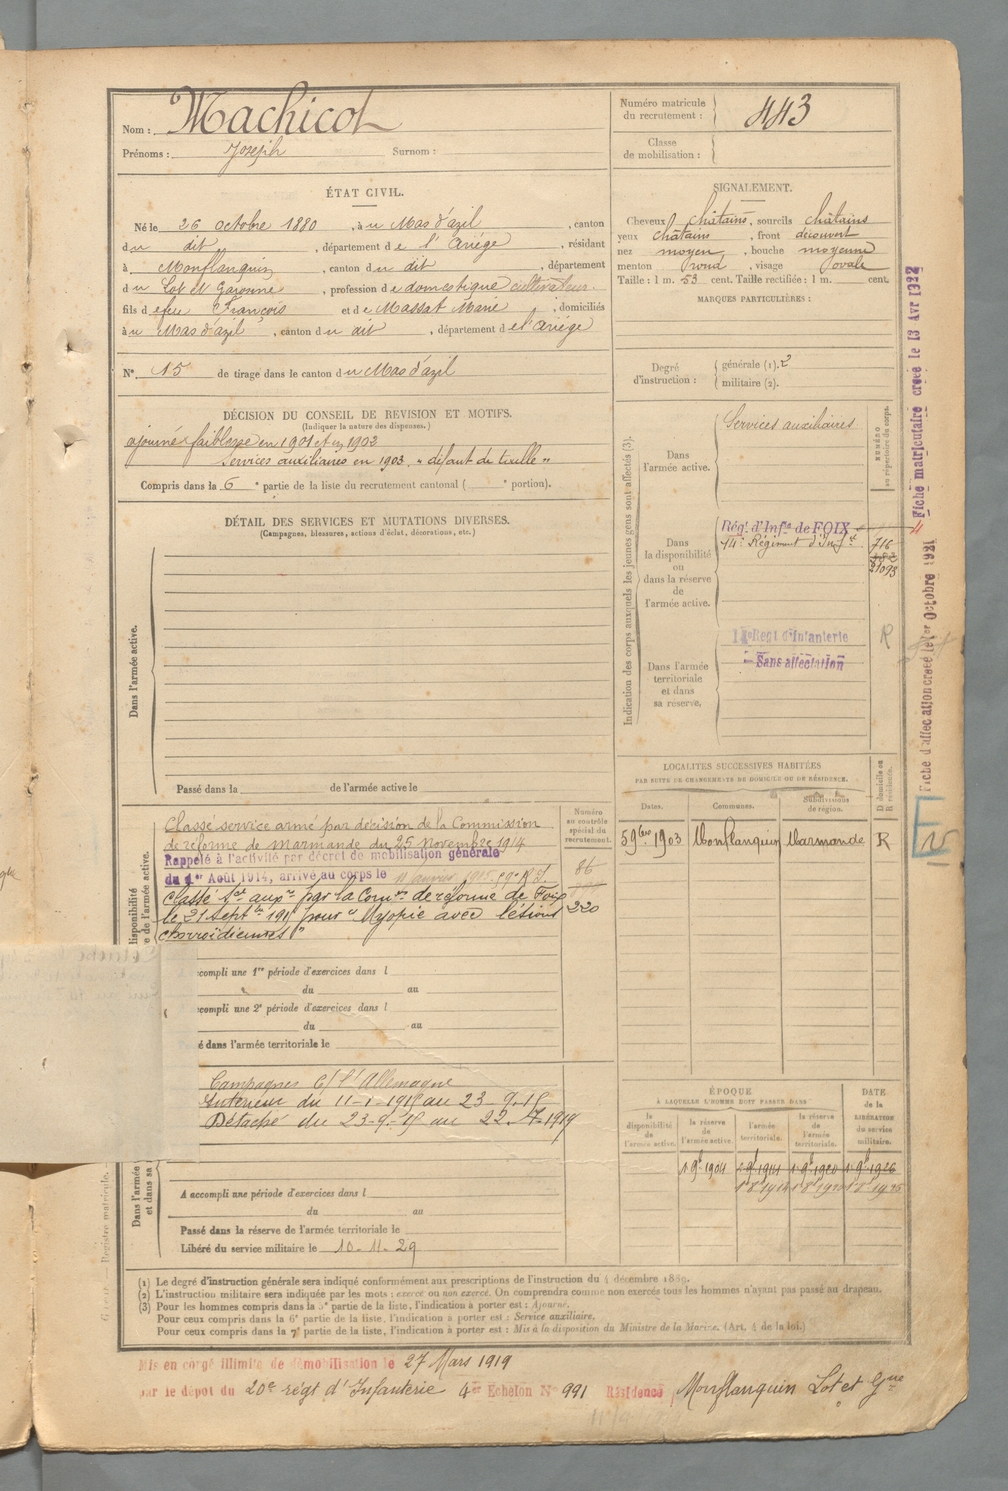 Nom : Machicot
Prénoms : Joseph Surnom :
Numéro matricule du recrutement : 443
Classe de mobilisation :
ÉTAT CIVIL.
Né le 26 octobre 1880, à u Mas d'azil, canton
du dit, département de l'Ariége, résidant
à Monflanquin, canton du dit, département
du Lot et Garonne, profession de domestique cultivateur.
fils de feu François et de Massat Marie, domiciliés
à u Mas d'azil, canton du dit, département de l'Ariége
N° 15 de tirage dans le canton du Mas d'azil
SIGNALEMENT.
Cheveux châtains, sourcils châtains
yeux châtains, front découvert
nez moyen, bouche moyenne
menton rond, visage ovale
Taille : 1 m. 53 cent. Taille rectifiée : 1 m. cent.
MARQUES PARTICULIÈRES :
Degré d'instruction : générale (1). 2
militaire (2).
DÉCISION DU CONSEIL DE REVISION ET MOTIFS.
(Indiquer la nature des dispenses.)
ajourné faiblesse en 1901 et en 1902
Services auxiliaires en 1903. "défaut de taille"
Compris dans la 6e partie de la liste du recrutement cantonal ( e portion).
DÉTAIL DES SERVICES ET MUTATIONS DIVERSES.
(Campagnes, blessures, actions d'éclat, décorations, etc.)
Dans l'armée active.
Passé dans la de l'armée active le
Indication des corps auxquels les jeunes gens sont affectés (3).
NUMÉRO au répertoire du corps.
Dans l'armée active.
Services auxiliaires
Dans la disponibilité ou dans la réserve de l'armée active.
Rég. d'Inf.ie de FOIX
14e Régiment d'Inf.ie
716
21093
Dans l'armée territoriale et dans sa réserve.
Regt d'Infanterie
Sans affectation
R
Fiche matriculaire creée le 13 Avr 1922
Fiche d'affectation creée le 1er Octobre 1921
LOCALITÉS SUCCESSIVES HABITÉES
PAR SUITE DE CHANGEMENTS DE DOMICILE OU DE RÉSIDENCE.
Dates. Communes. Subdivisions de région. D domicile ou R résidence.
5 9bre 1903 Monflanquin Marmande R
Numéro au contrôle spécial du recrutement.
86
220
Classé service armé par décision de la Commission
de réforme de Marmande du 25 Novembre 1914
Rappelé à l'activité par décret de mobilisation générale
du 1er Août 1914, arrivé au corps le 11 janvier 1915
classé Sce auxre par la Comon de réforme de Foix
le 21 Septbre 191 pour "Myopie avec lésions
choroïdiennes"
ccompli une 1re période d'exercices dans l
du au
ccompli une 2e période d'exercices dans l
du au
é dans l'armée territoriale le
Campagnes c/ l'Allemagne
Intérieur du 11-1-1915 au 23-9-15
Détaché du 23-9-15 au 22-7-1919
A accompli une période d'exercices dans l
du au
Passé dans la réserve de l'armée territoriale le
Libéré du service militaire le 10-11-29
ÉPOQUE
À LAQUELLE L'HOMME DOIT PASSER DANS
la disponibilité de l'armée active. la réserve de l'armée active. l'armée territoriale. la réserve de l'armée territoriale. DATE de la LIBÉRATION du service militaire.
1 9bre 1904 1 9bre 1914 1 9bre 1920 1 9bre 1926
(1) Le degré d'instruction générale sera indiqué conformément aux prescriptions de l'instruction du 4 décembre 1889.
(2) L'instruction militaire sera indiquée par les mots : exercé ou non exercé. On comprendra comme non exercés tous les hommes n'ayant pas passé au drapeau.
(3) Pour les hommes compris dans la 5e partie de la liste, l'indication à porter est : Ajourné.
Pour ceux compris dans la 6e partie de la liste, l'indication à porter est : Service auxiliaire.
Pour ceux compris dans la 7e partie de la liste, l'indication à porter est : Mis à la disposition du Ministre de la Marine. (Art. 4 de la loi.)
Mis en congé illimité de démobilisation le 27 Mars 1919
par le dépot du 20e régt d'Infanterie 4er Echelon N° 991 Résidence Monflanquin Lot et Gne